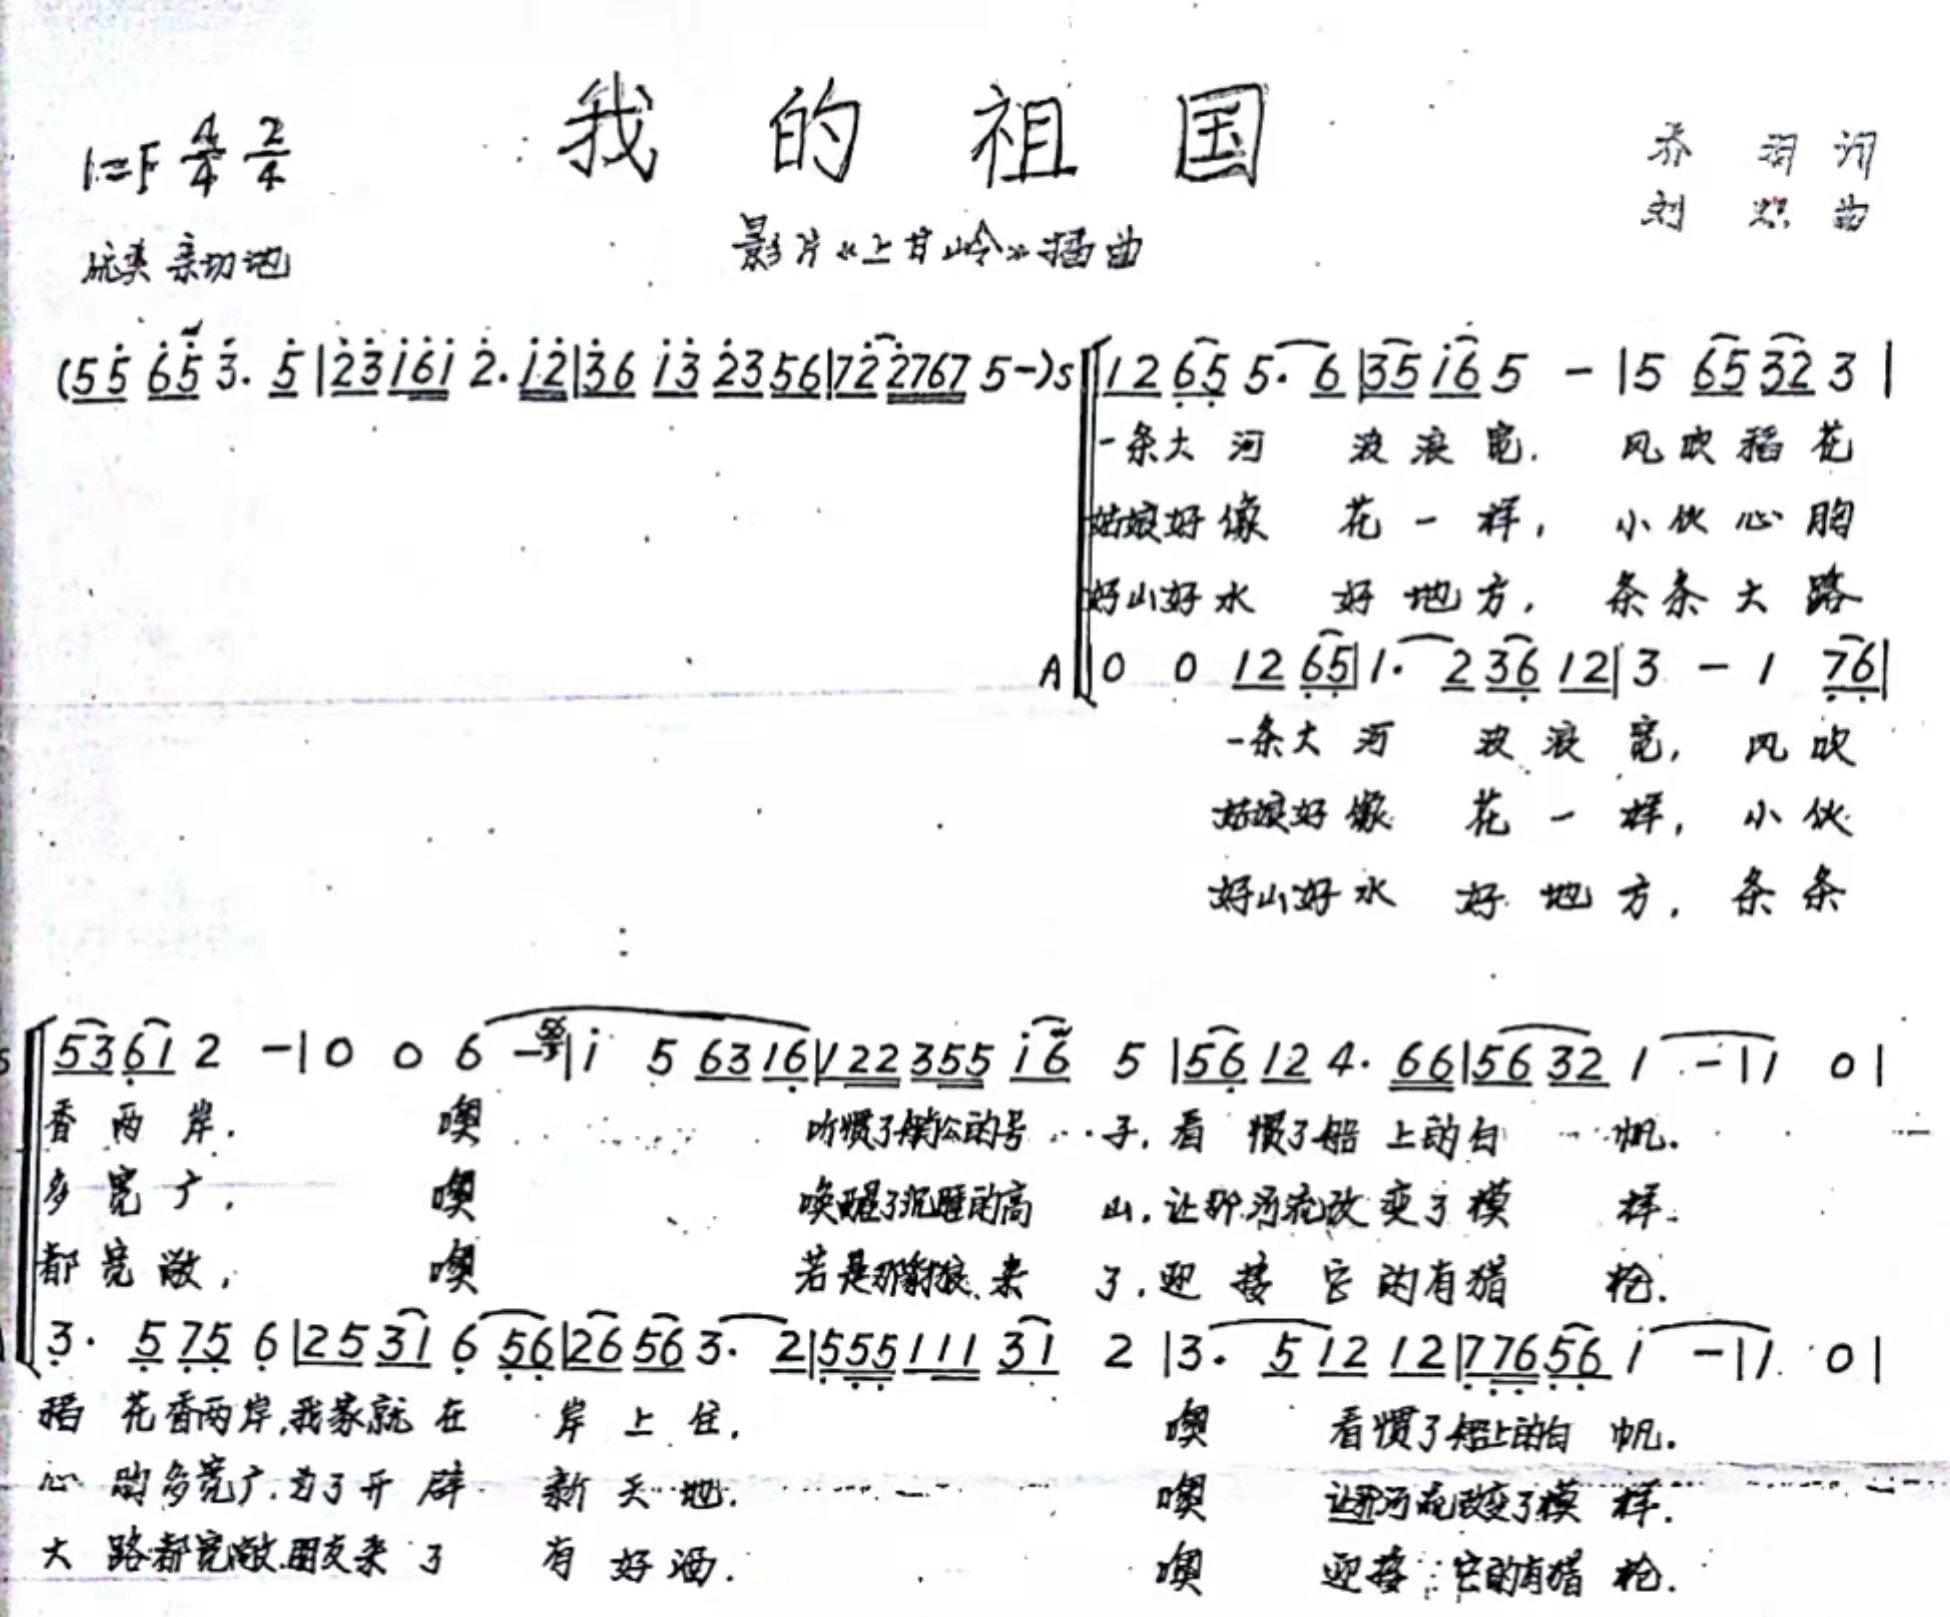 我的祖国
1=F 4/4 2/4
乔羽词
刘炽曲
优美 亲切地
影片《上甘岭》插曲
(5 5 6 5 3. 5 | 2 3 1 6 1 2. 1 2 | 3 6 1 3 2 3 5 6 | 7 2 2 7 6 7 5 -) S 1 2 6 5 5. 6 | 3 5 1 6 5 - | 5 6 5 3 2 3 |
一条大河 波浪宽. 风吹稻花
姑娘好像 花一样, 小伙心胸
好山好水 好地方, 条条大路
A 0 0 1 2 6 5 | 1. 2 3 6 1 2 | 3 - 1 7 6 |
一条大河 波浪宽, 风吹
姑娘好像 花一样, 小伙
好山好水 好地方, 条条
S 5 3 6 1 2 - | 0 0 6 - 56 | 1 5 6 3 1 6 | 1 2 2 3 5 5 1 6 5 | 5 6 1 2 4. 6 6 | 5 6 3 2 1 - | 1 0 |
香两岸. 噢 听惯了艄公的号子, 看惯了船上的白帆.
多宽广, 噢 唤醒了沉睡的高山, 让那河流改变了模样.
都宽敞, 噢 若是那豺狼来了, 迎接它的有猎枪.
3. 5 7 5 6 | 2 5 3 1 6 5 6 | 2 6 5 6 3. 2 | 5 5 5 1 1 1 3 1 2 | 3. 5 1 2 1 2 | 7 7 6 5 6 1 - | 1 0 |
稻花香两岸, 我家就在岸上住. 噢 看惯了船上的白帆.
心胸多宽广, 为了开辟新天地. 噢 让那河流改变了模样.
大路都宽敞, 朋友来了有好酒. 噢 迎接它的有猎枪.